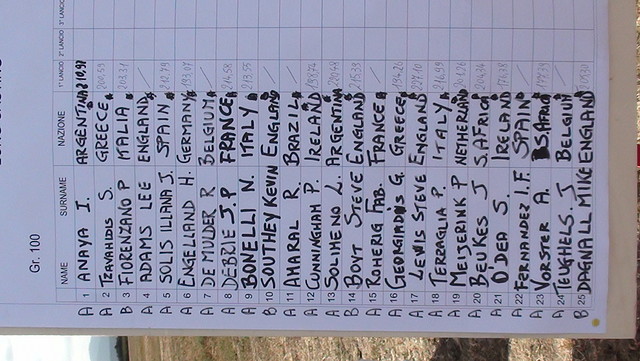 Gr. 100
NAME SURNAME NAZIONE 1° LANCIO 2° LANCIO 3° LANCIO
A 1 ANAYA I. ARGENTINA 210,97
A 2 TZAVAHIDIS S. GREECE 200.59
B 3 FIORENZANO P ITALIA 203.31
A 4 ADAMS LEE ENGLAND /
A 5 SOLIS ILLANA J. SPAIN 212.79
A 6 ENGELLAND H. GERMANY 193.07
A 7 DE MULDER R BELGIUM /
A 8 DEBRIE J.P FRANCE 214.58
A 9 BONELLI N. ITALY 213.55
B 10 SOUTHEY KEVIN ENGLAND /
A 11 AMARAL R. BRAZIL /
A 12 CUNNINGHAM P. IRELAND 198.74
A 13 SOLIMENO L. ARGENTINA 220.48
B 14 BOYT STEVE ENGLAND 215.33
A 15 ROMERIG FAB. FRANCE /
A 16 GEORGIADIS G. GREECE 194.20
A 17 LEWIS STEVE ENGLAND 227.10
A 18 TERZAGLIA P. ITALY 216.99
A 19 MEIJERINK P NETHERLAND
A 20 BEUKES J S.AFRICA 204.34
A 21 ODEA S. IRELAND
A 22 FERNANDEZ I.F. SPAIN /
A 23 VORSTER A. S.AFRICA
A 24 TEUGHELS. J BELGIUM /
B 25 DAGNALL MIKE ENGLAND